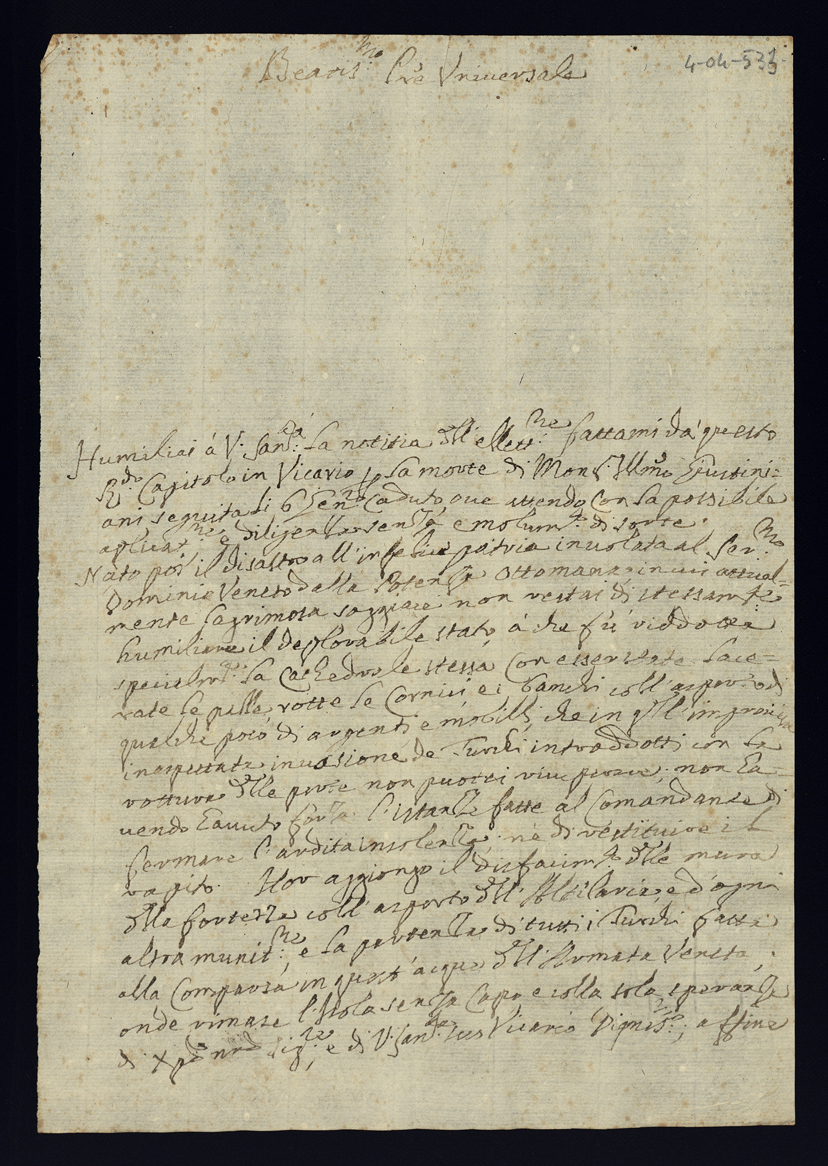 4-04-533
Beatis.mo Pre Vniversale
Humiliai á V. San.tá la notitia dell'elett.ne fattami dá questo
R.do Capitolo in Vicario p la morte di Mons.r Ill.mo Giustini=
ani seguita li 6 Gen.ro caduto, oue attendo con la possibile
aplicat.ne e diligenza senza emolum.to di sorte.
Nato poi il disastro all'infelice patria inuolata al Ser.mo
Dominio Veneto dalla Potenza Ottomana in cui attual=
mente lagrimosa soggiace non restai di stessam.te
humiliare il deplorabile stato á che fú ridotta
special.te la Cathedrale stessa con esser state lace=
rate le palle, rotte le Cornici e i banchi coll'asporto di
qualche poco di argenti e mobili, che in q.ll' improuisa
inaspettata inuasione de Turchi introddotti con la
rottura delle porte non puotei ; non ha=
uendo hauuto forza l'istanze fatte al Comandante di
fermare l'ardita insolenza, né di restituire il
rapito. Hor aggiongo il disfacim.to delle mura
della fortezza coll'asporto dell'Artilaria, e d'ogni
altra munit.ne e la partenza di tutti i Turchi fatta
alla Comparsa in quest'acque dell'Armata Veneta,
onde rimase l'Isola senza Capo e colla sola speranza
di Xpo nro Sig.re, e di V. San.tá suo Vicario Dignis.mo, affine